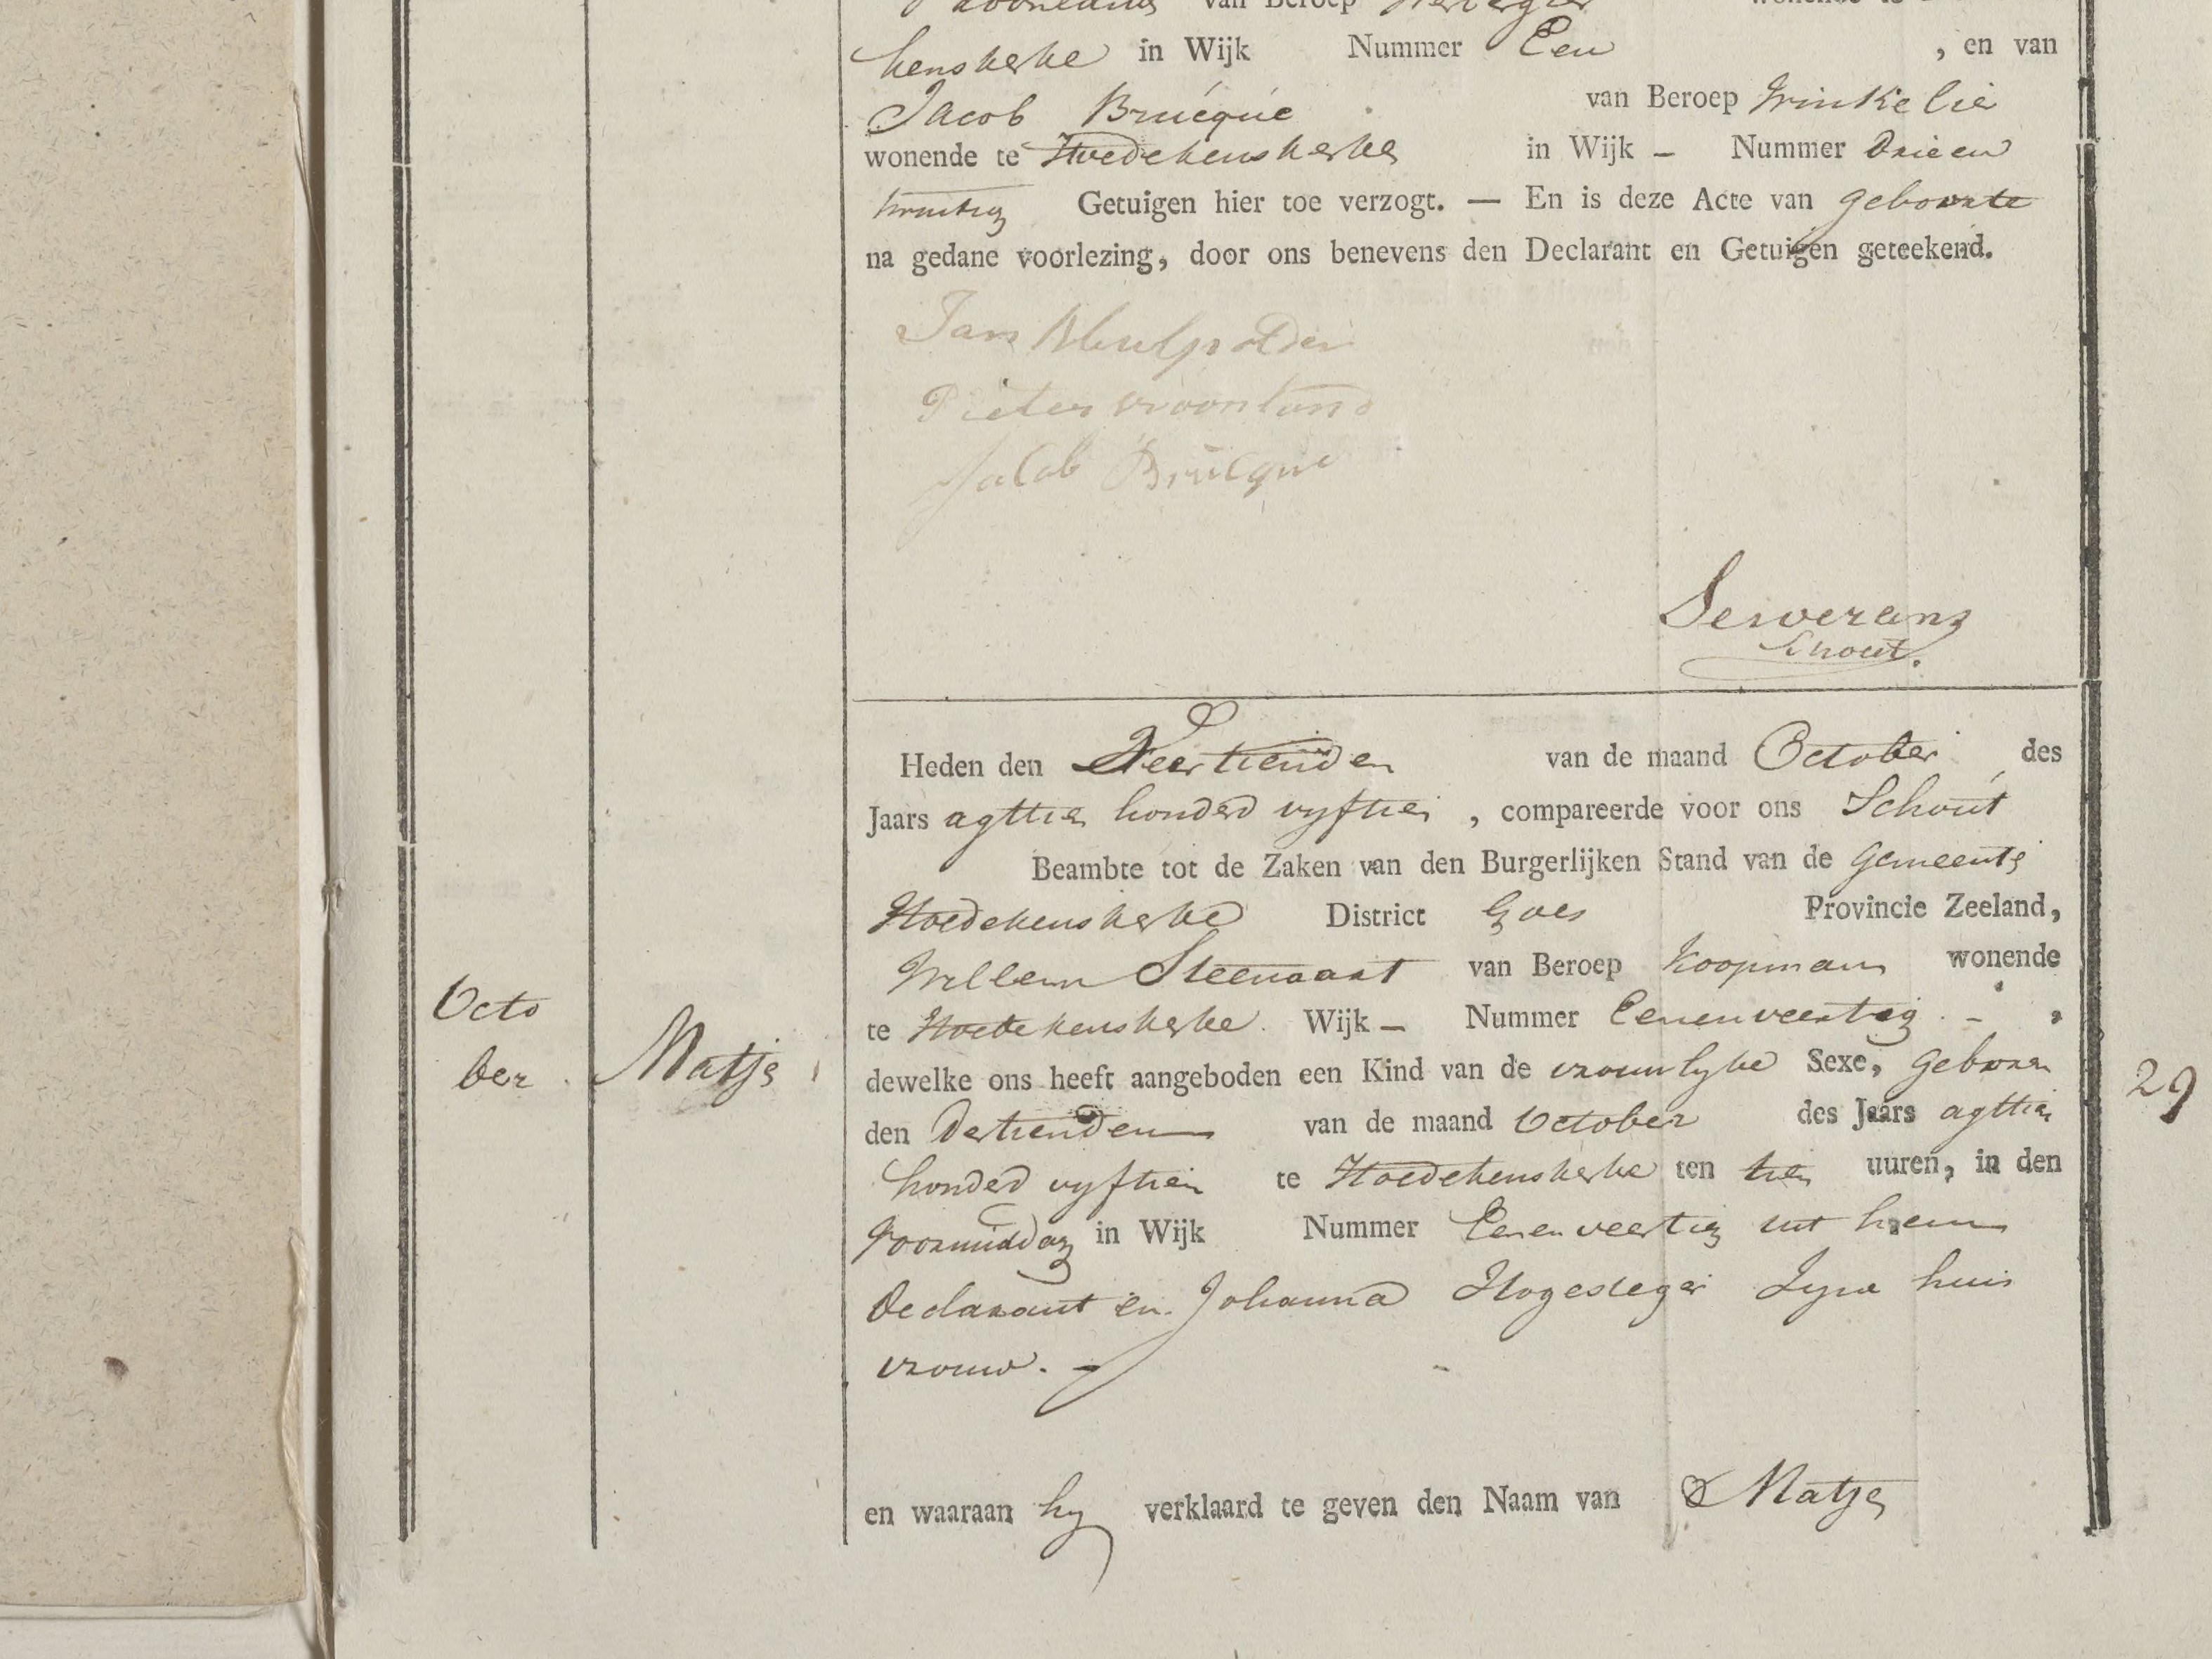 van Beroep
kenskerke in Wijk Nummer Een , en van
Jacob Brucque van Beroep Winkelie
wonende te Hoedekenskerke in Wijk - Nummer Drieen
twintig Getuigen hier toe verzogt. — En is deze Acte van geboorte
na gedane voorlezing, door ons benevens den Declarant en Getuigen geteekend.
Jan
Pieter vroonland
Jacob Brucque
Serverans
Schout.
Heden den Veertienden van de maand October des
Jaars agttien honderd vyftien , compareerde voor ons Schout
Beambte tot de Zaken van den Burgerlijken Stand van de Gemeente
Hoedekenskerke District Goes Provincie Zeeland,
Willem Steenaart van Beroep Koopman wonende
te Hoedekenskerke. Wijk - Nummer Eenenveertig - ,
Octo
ber.
Matje
dewelke ons heeft aangeboden een Kind van de vrouwlyke Sexe, geboren
29
den Dertienden van de maand October des Jaars agttien
honderd vyftien te Hoedekenskerke ten tien uuren, in den
voormiddag in Wijk Nummer Eenenveertig uit hem
Declarant en Johanna Hogesteger Zyne huis
vrouw. -
en waaraan hy verklaard te geven den Naam van Matje